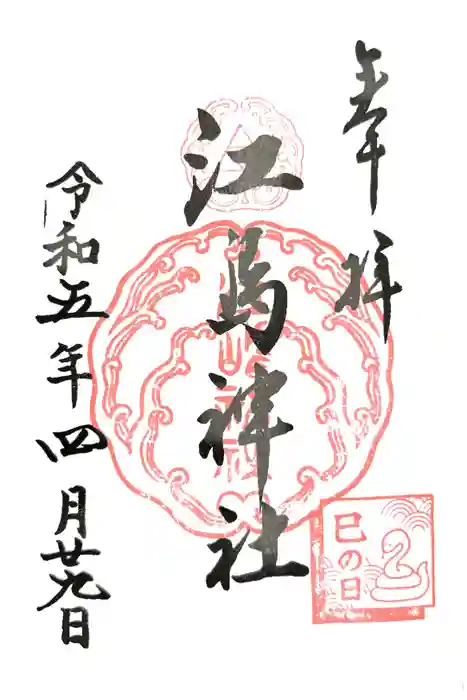 奉拝
江島神社
巳の日
令和五年四月廿九日